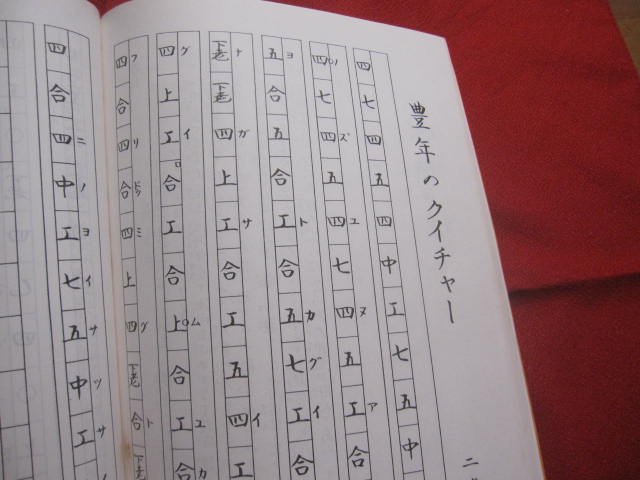 豊年のクイチャー
四七四五四中工七五中
四ソ七四ズ五四ユ七四ヌ五工ア合
五ヨ合五合工ト合五カ七グ工イ合
下老ト下老四ガ上工サ合工五四イ工
四グ上工イ合工合上ム合工ユ合カ
四フ合四リ合四ミ上四グ下老合ト下老
四合四ニ中ノ工ヨ七イ五サ中ツ工サ